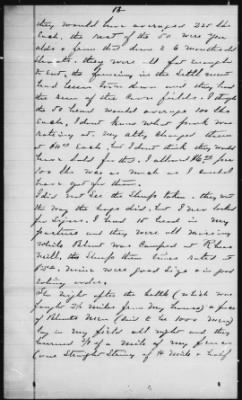 18
they would have averaged 225 lbs
each, the rest of the 50 were year
olds & from that down to 6 months old
shoats. they were all fat enough
to eat, the fencing in the settlement
had been torn down and they had
the run of the corn fields. I think
the 50 head would average 100 lbs
each, I dont know what pork was
rating at. my atty charged them
at each, but I dont think they would
have sold for that. I allowed per
100 lbs was as much as I could
have got for them.
I did not see the sheep taken. they went
the way the hogs did, but I never looked
for signs. I had 15 head in my
pasture and they were all missing
while Blunt was camped at Rheas
Mill, the sheep there were rated at
were good size & in good
eating order.
The night after the battle (which was
fought 2½ miles from my house) a force
of Blunts men (said to be 1000 men)
lay in my field all night and they
burned ¾ of a mile of my fence
(one straight string of ½ mile & half